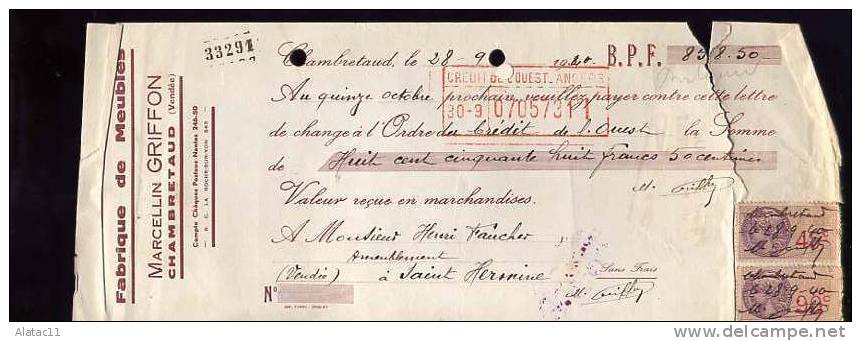 Fabrique de Meubles
MARCELLIN GRIFFON
CHAMBRETAUD (Vendée)
Compte Chèques Postaux Nantes 246-50
R. C. LA ROCHE-SUR-YON
33291
Chambretaud, le 28-9 1940. B.P.F. 858.50
CREDIT DE L'OUEST. ANGERS
Au quinze octobre prochain veuillez payer contre cette lettre
30-9 0705731
de change à l'Ordre du Crédit de l'Ouest la Somme
de Huit cent cinquante huit francs 50 centimes
Valeur reçue en marchandises.
A Monsieur Henri Faucher
Ameublement
(Vendée) à Saint Hermine Sans Frais
N°
Chambretaud
le 28-9-40
Chambretaud
le 28-9-40
Alatac11
www.delcampe.net